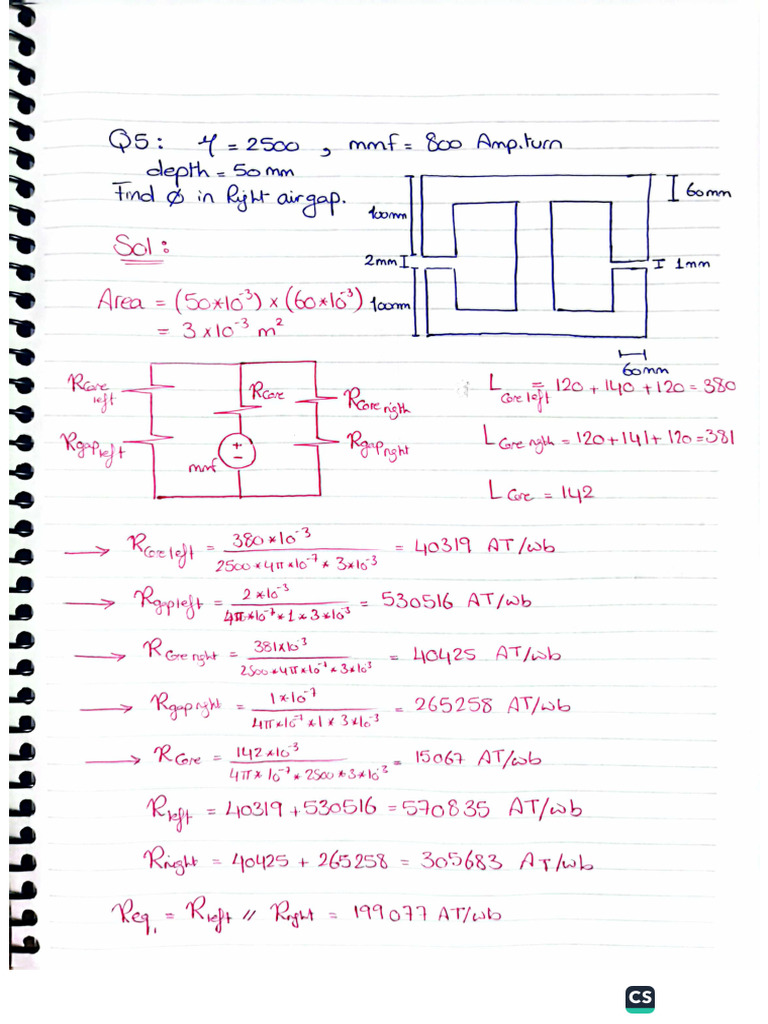 Q5: μ = 2500 , mmf = 800 Amp.turn
depth = 50 mm
Find ϕ in Right air gap.
60mm
100mm
2mm
1mm
100mm
60mm
Sol:
Area = (50*10^-3) × (60*10^-3)
= 3 × 10^-3 m²
R core left
R core
R core rigth
R gap left
mmf
R gap right
L core left = 120 + 140 + 120 = 380
L core rigth = 120 + 141 + 120 = 381
L core = 142
→ R core left = 380*10^-3 / 2500*4π*10^-7 * 3*10^-3 = 40319 AT/wb
→ R gap left = 2*10^-3 / 4π*10^-7 * 1 * 3*10^-3 = 530516 AT/wb
→ R core right = 381×10^-3 / 2500*4π×10^-7 * 3×10^-3 = 40425 AT/wb
→ R gap right = 1*10^-7 / 4π×10^-7 × 1 × 3×10^-3 = 265258 AT/wb
→ R core = 142*10^-3 / 4π*10^-7 * 2500*3*10^-3 = 15067 AT/wb
R left = 40319 + 530516 = 570835 AT/wb
R right = 40425 + 265258 = 305683 AT/wb
R eq1 = R left // R right = 199077 AT/wb
CS